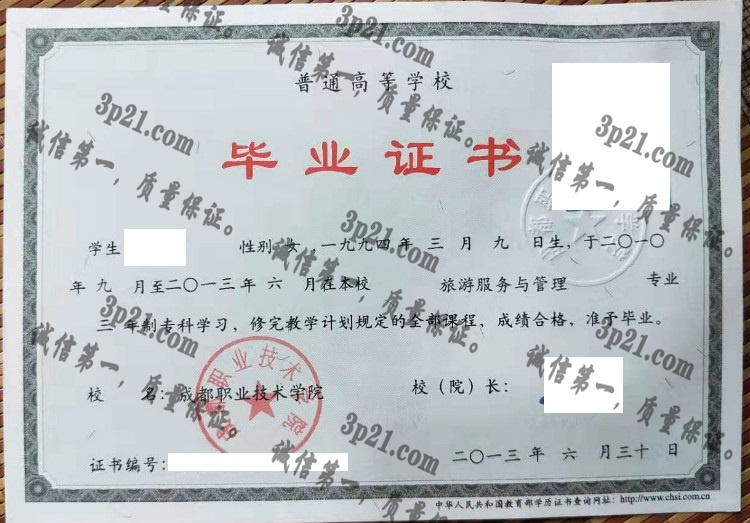 普通高等学校
毕业证书
学生 性别 女，一九九四年 三 月 九 日生，于二〇一〇
年 九 月至二〇一三年 六 月在本校 旅游服务与管理 专业
三 年制专科学习，修完教学计划规定的全部课程，成绩合格，准予毕业。
校 名：成都职业技术学院
校（院）长：
成都职业技术学院
证书编号：
二〇一三年 六 月三十日
中华人民共和国教育部学历证书查询网址：http://www.chsi.com.cn
3p21.com
诚信第一，质量保证。
3p21.com
诚信第一，质量保证。
3p21.com
诚信第一，质量保证。
3p21.com
诚信第一，质量保证。
3p21.com
诚信第一，质量保证。
3p21.com
诚信第一，质量保证。
3p21.com
诚信第一，质量保证。
3p21.com
诚信第一，质量保证。
3p21.com
诚信第一，质量保证。